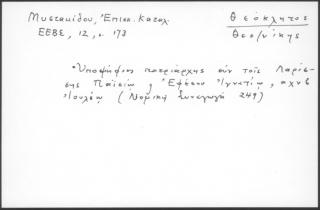 Μυστακίδου, Ἐπισκ. Κατάλ.
ΕΕΒΣ, 12, σ. 178
Θεόκλητος
Θεσ/νίκης
Ὑποψήφιος πατριάρχης σὺν τοῖς Λαρίσ-
σης Παϊσίῳ, Ἐφέσου Ἰγνατίῳ, αχνβ
Ἰουλίῳ (Νομικὴ Συναγωγὴ 249)